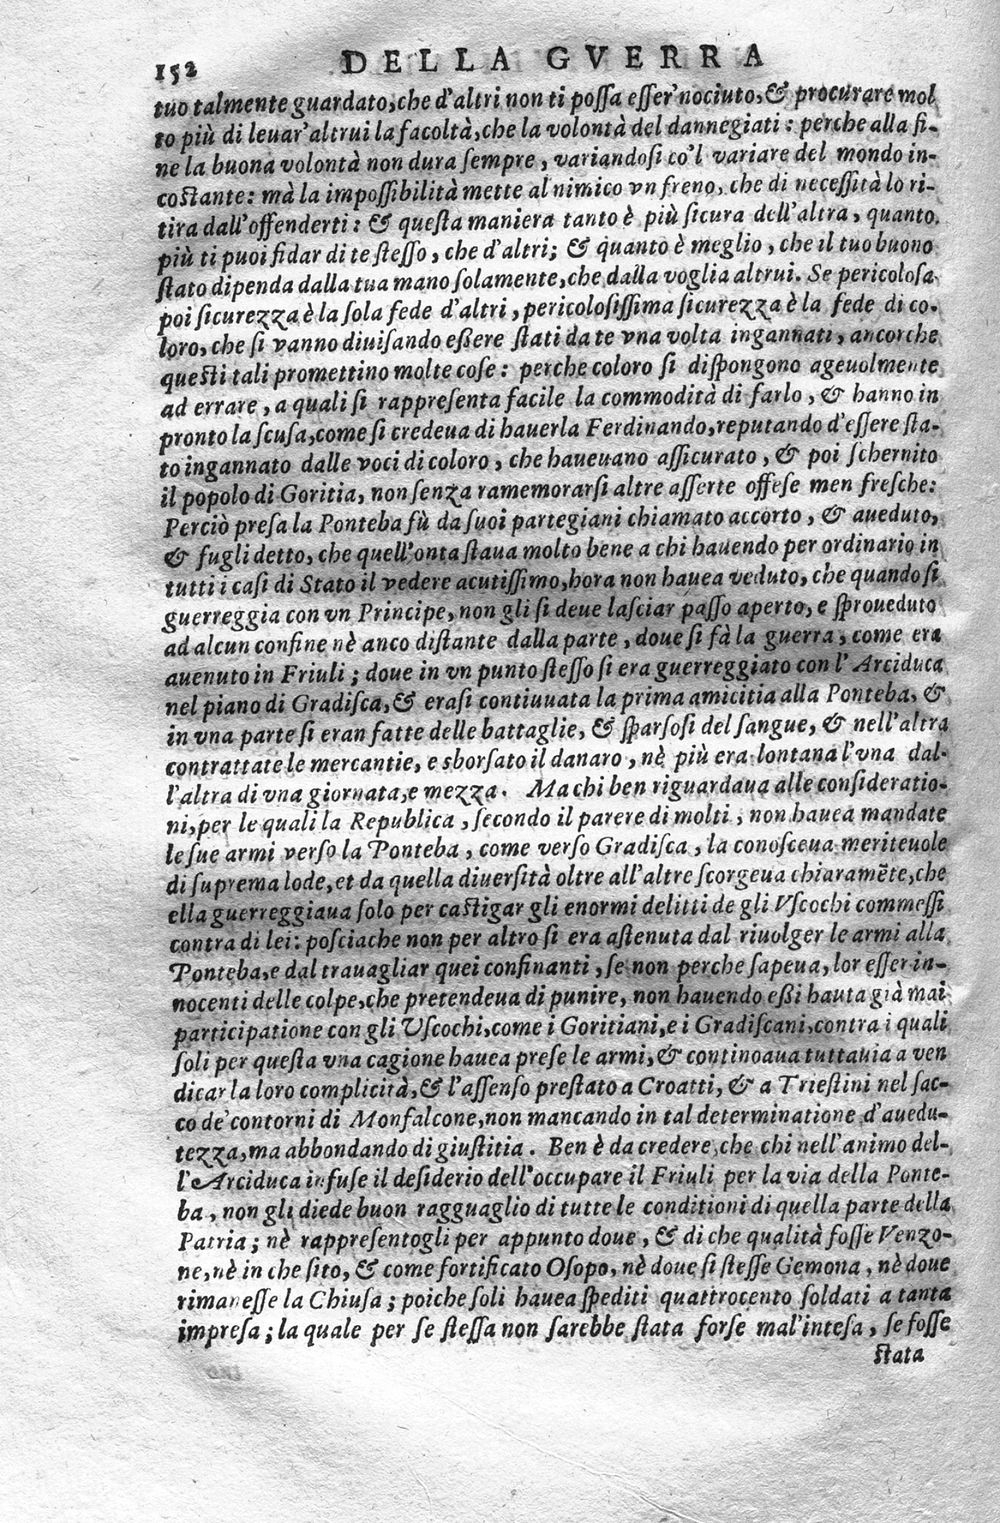 152 DELLA GVERRA
tuo talmente guardato, che d'altri non ti possa esser' nociuto, & procurare mol
to più di leuar' altrui la facoltà, che la volontà del dannegiati: perche alla fi-
ne la buona volontà non dura sempre, variandosi co'l variare del mondo in-
costante: mà la impossibilità mette al nimico vn freno, che di necessità lo ri-
tira dall'offenderti: & questa maniera tanto è più sicura dell'altra, quanto
più ti puoi fidar di te stesso, che d'altri; & quanto è meglio, che il tuo buono
stato dipenda dalla tua mano solamente, che dalla voglia altrui. Se pericolosa
poi sicurezza è la sola fede d'altri, pericolosissima sicurezza è la fede di co-
loro, che si vanno diuisando eßere stati da te vna volta ingannati, ancorche
questi tali promettino molte cose: perche coloro si dispongono ageuolmente
ad errare, a quali si rappresenta facile la commodità di farlo, & hanno in
pronto la scusa, come si credeua di hauerla Ferdinando, reputando d'essere sta-
to ingannato dalle voci di coloro, che haueuano assicurato, & poi schernito
il popolo di Goritia, non senza ramemorarsi altre asserte offese men fresche:
Perciò presa la Ponteba fù da suoi partegiani chiamato accorto, & aueduto,
& fugli detto, che quell'onta staua molto bene a chi hauendo per ordinario in
tutti i casi di Stato il vedere acutissimo, hora non hauea veduto, che quando si
guerreggia con vn Principe, non gli si deue lasciar passo aperto, e sproueduto
ad alcun confine nè anco distante dalla parte, doue si fà la guerra, come era
auenuto in Friuli; doue in vn punto stesso si era guerreggiato con l'Arciduca
nel piano di Gradisca, & erasi contiuuata la prima amicitia alla Ponteba, &
in vna parte si eran fatte delle battaglie, & sparsosi del sangue, & nell'altra
contrattate le mercantie, e sborsato il danaro, nè più era lontana l'vna dal-
l'altra di vna giornata, e mezza. Ma chi ben riguardaua alle consideratio-
ni, per le quali la Republica, secondo il parere di molti, non hauea mandate
le sue armi verso la Ponteba, come verso Gradisca, la conosceua meriteuole
di suprema lode, et da quella diuersità oltre all'altre scorgeua chiaramẽte, che
ella guerreggiaua solo per castigar gli enormi delitti de gli Vscochi commessi
contra di lei: posciache non per altro si era astenuta dal riuolger le armi alla
Ponteba, e dal trauagliar quei confinanti, se non perche sapeua, lor esser in-
nocenti delle colpe, che pretendeua di punire, non hauendo eßi hauta già mai
participatione con gli Vscochi, come i Goritiani, e i Gradiscani, contra i quali
soli per questa vna cagione hauea prese le armi, & continoaua tuttauia a ven
dicar la loro complicità, & l'assenso prestato a Croatti, & a Triestini nel sac-
co de' contorni di Monfalcone, non mancando in tal determinatione d'auedu-
tezza, ma abbondando di giustitia. Ben è da credere, che chi nell'animo del-
l'Arciduca infuse il desiderio dell'occupare il Friuli per la via della Ponte-
ba, non gli diede buon ragguaglio di tutte le conditioni di quella parte della
Patria; nè rappresentogli per appunto doue, & di che qualità fosse Venzo-
ne, nè in che sito, & come fortificato Osopo, nè doue si stesse Gemona, nè doue
rimanesse la Chiusa; poiche soli hauea spediti quattrocento soldati a tanta
impresa; la quale per se stessa non sarebbe stata forse mal'intesa, se fosse
stata